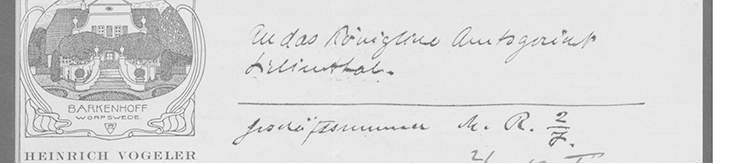 An das Königliche Amtsgericht
Lilienthal.
BARKENHOFF
WORPSWEDE.
HEINRICH VOGELER
Geschäftsnummer M. R. 2/7.